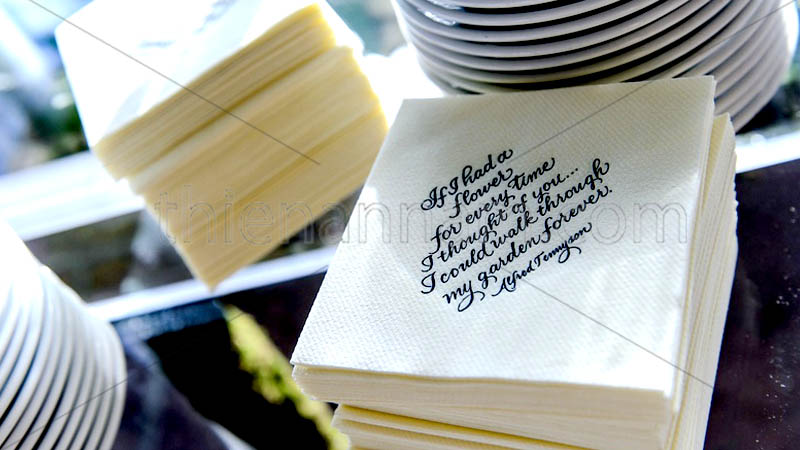 If I had a
flower
for every time
I thought of you...
I could walk through
my garden forever.
Alfred Tennyson